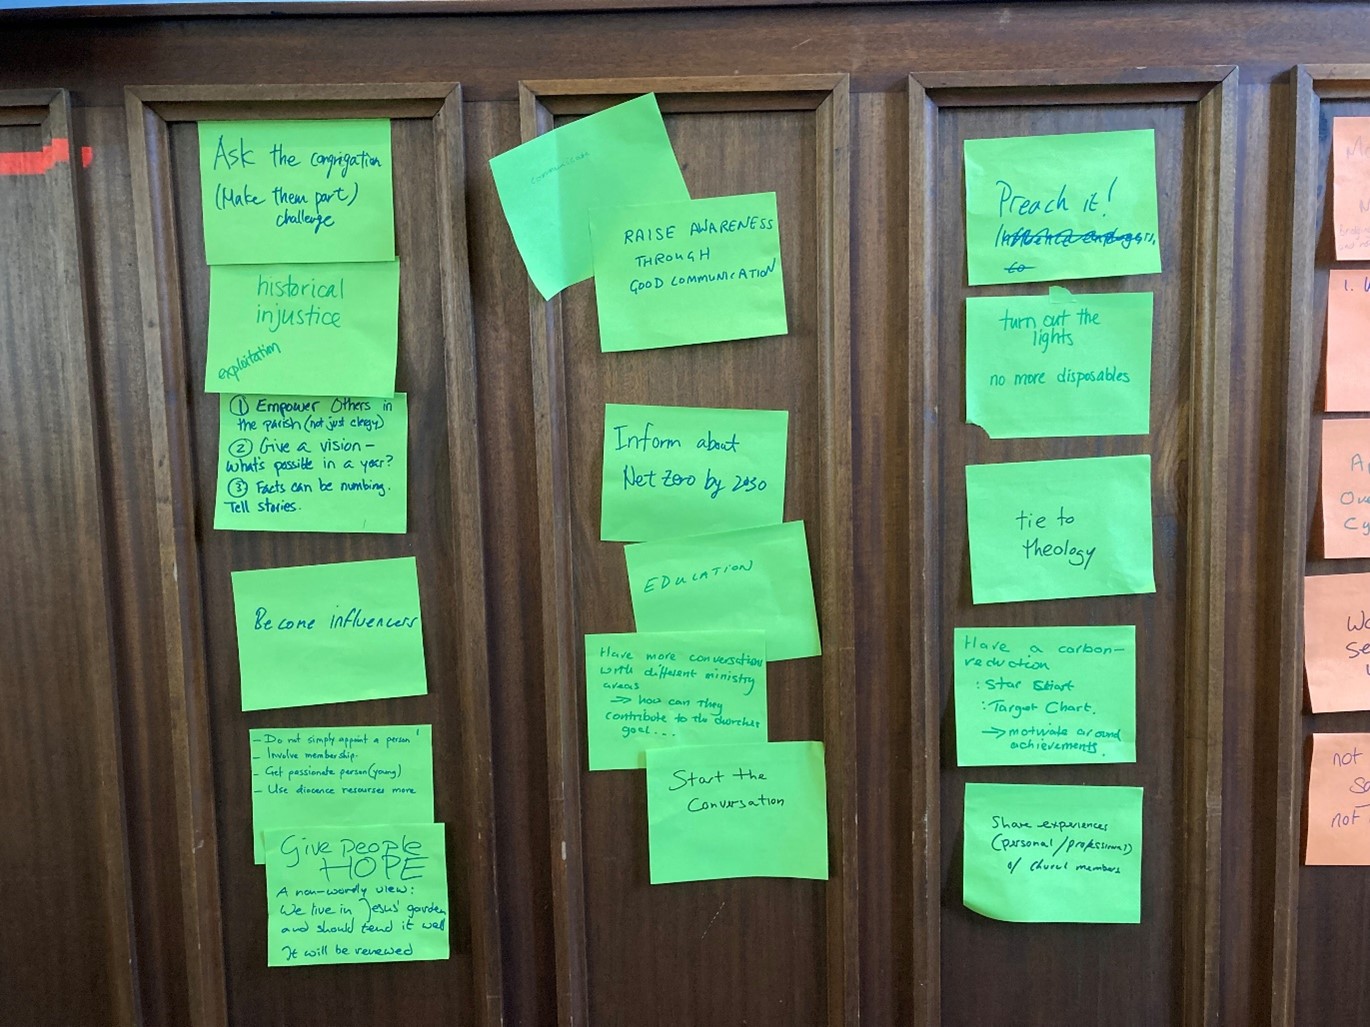 Ask the congrigation
(Make them part)
challenge
historical
injustice
exploitation
① Empower Others in
the parish (not just clergy)
② Give a vision –
what's possible in a year?
③ Facts can be numbing.
Tell stories.
Become influencers
– Do not simply appoint a person'
– Involve membership.
– Get passionate person (young)
– Use diocence resourses more
Give people
HOPE
A non-wordly view:
We live in Jesus' garden
and should tend it well
It will be renewed
communicate
RAISE AWARENESS
THROUGH
GOOD COMMUNICATION
Inform about
Net Zero by 2030
EDUCATION
Have more conversation
with different ministry
areas
→ how can they
contribute to the churches
goal...
Start the
Conversation
Preach it!
turn out the
lights
no more disposables
tie to
theology
Have a carbon-
reduction
: Star
: Target Chart.
→ motivate around
achievements.
Share experiences
(personal/professional)
of church members
1.
not
not